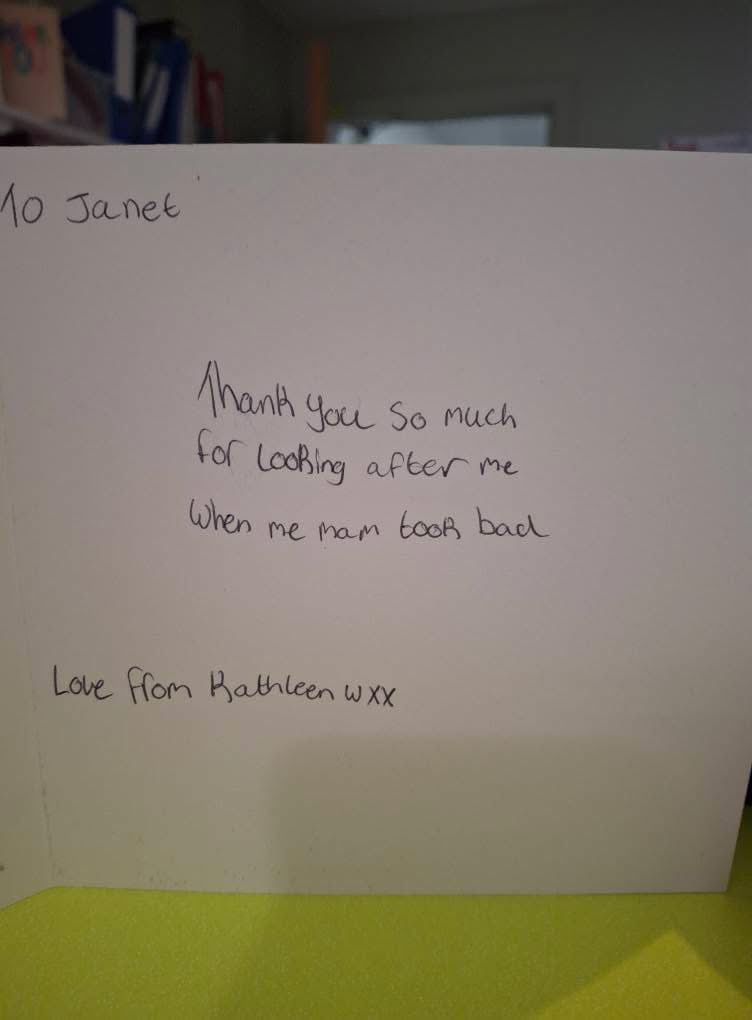 To Janet
Thank you so much
for looking after me
When me mam took bad
Love from Kathleen W xx